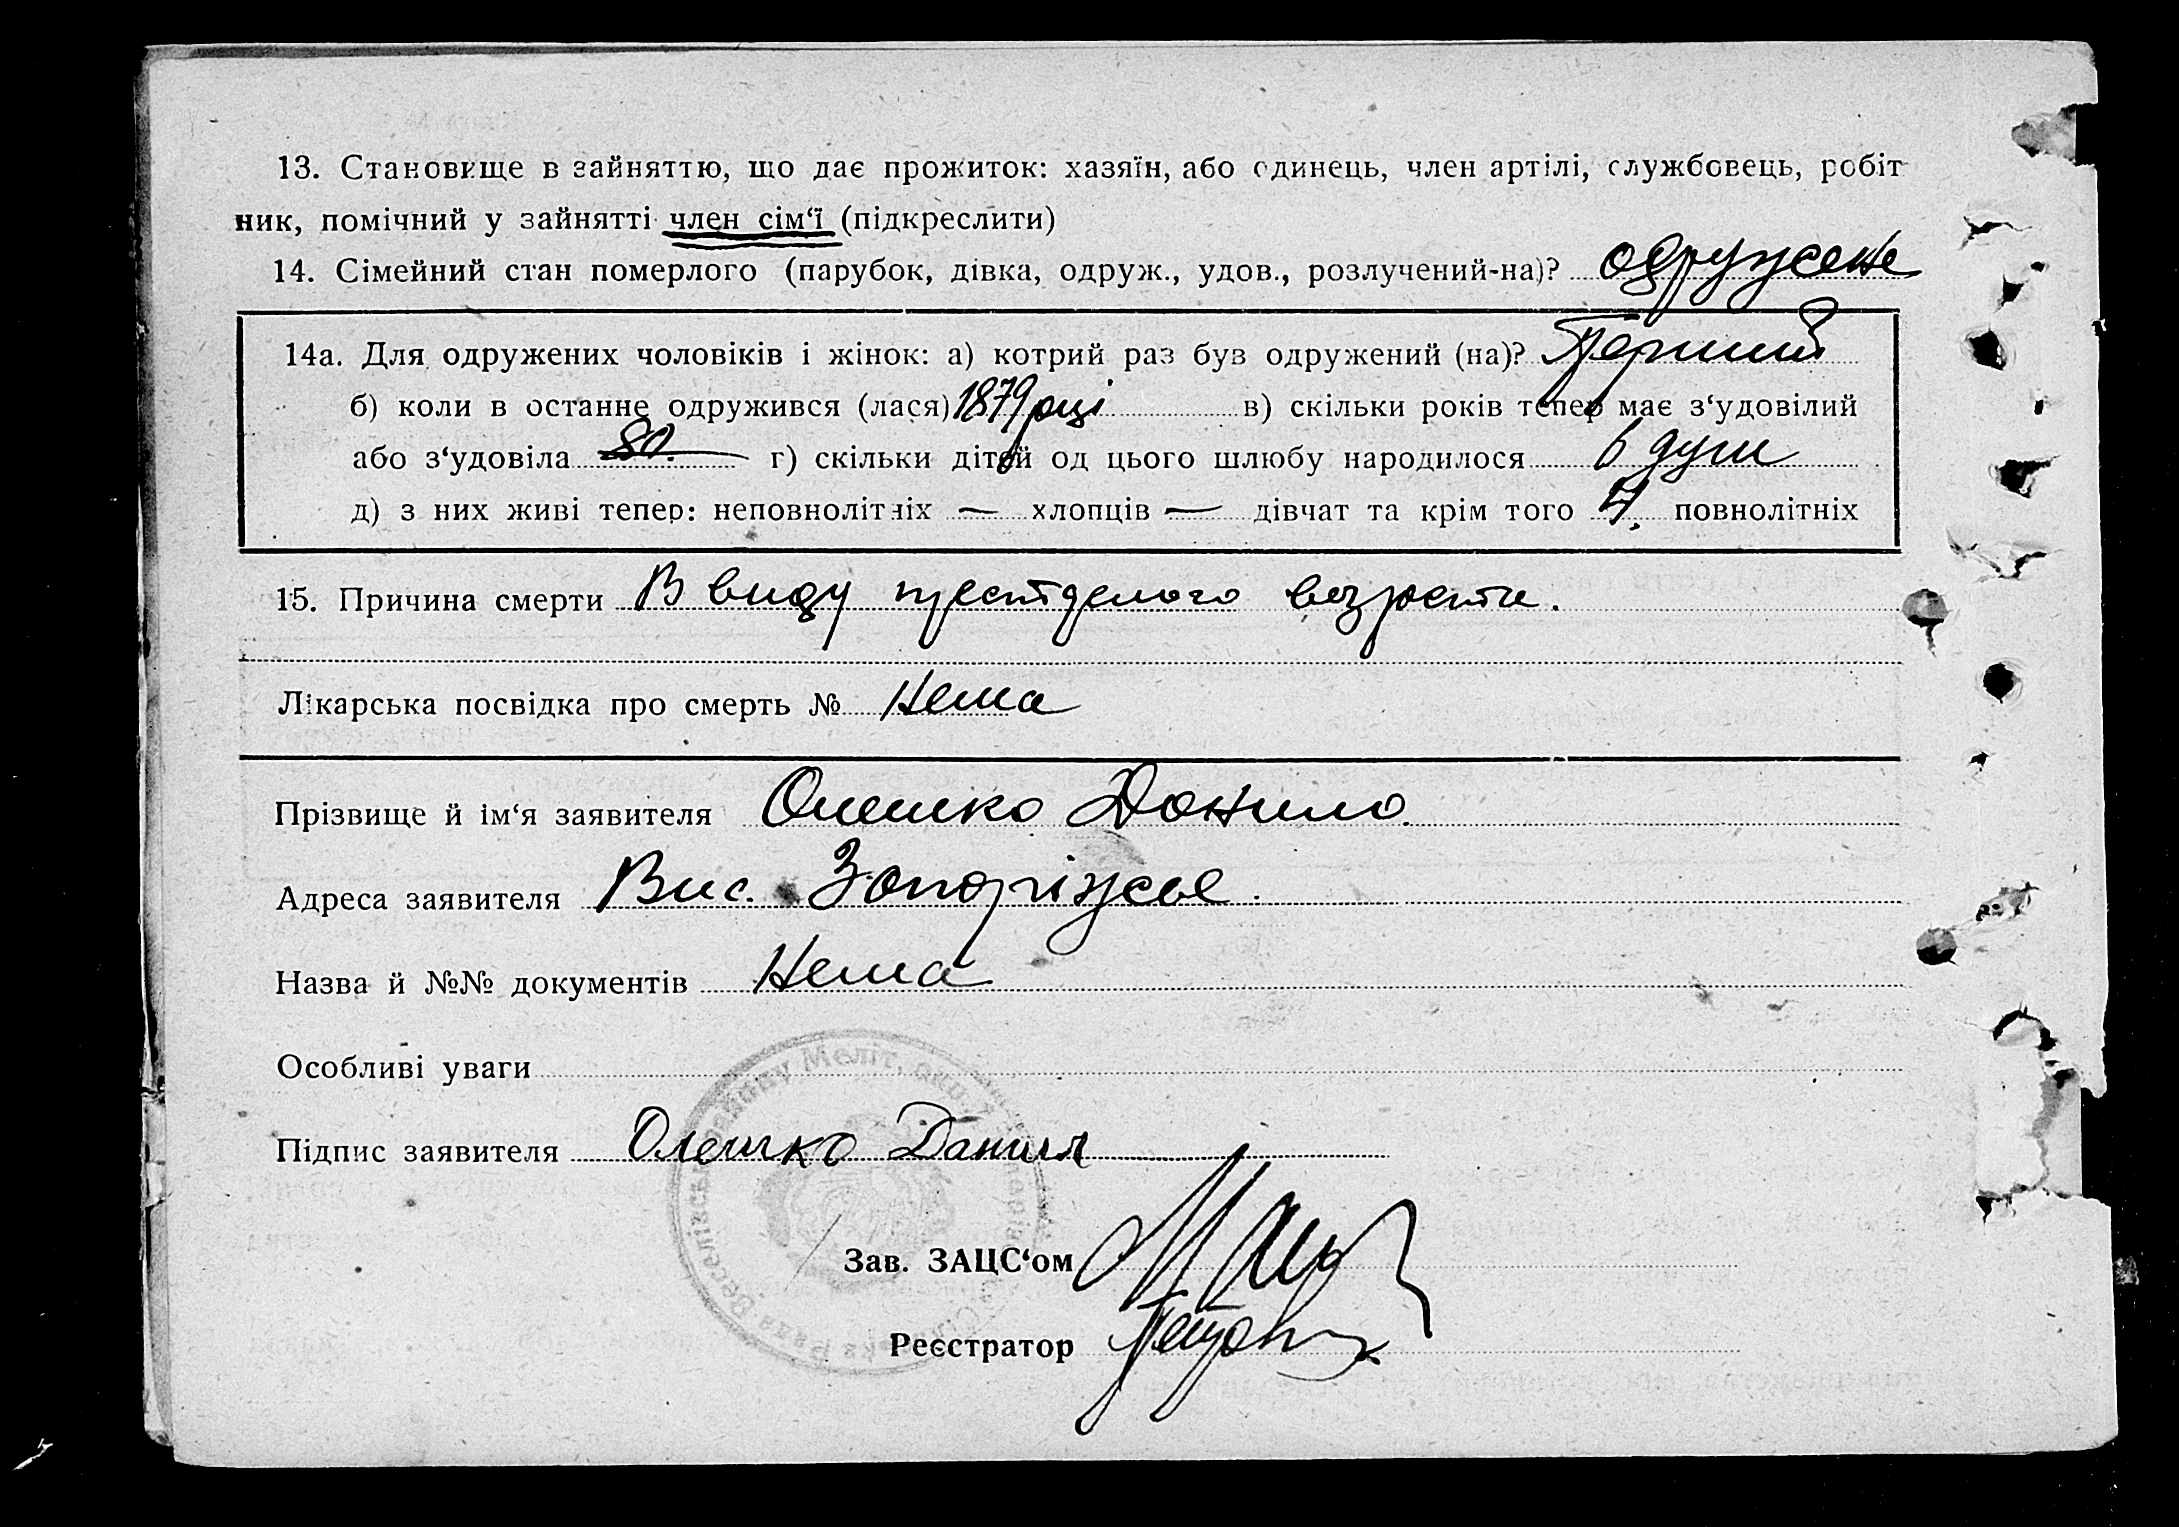 13. Становище в зайняттю, що дає прожиток: хазяїн, або одинець, член артілі, службовець, робіт-
ник, помічний у зайнятті член сім‘ї (підкреслити)
14. Сімейний стан померлого (парубок, дівка, одруж., удов., розлучений-на)? одружене
14а. Для одружених чоловіків і жінок: а) котрий раз був одружений (на)? Перший
б) коли в останнє одружився (лася) 1879 році в) скільки років тепер має з‘удовілий
або з‘удовіла 80. г) скільки дітей од цього шлюбу народилося 6 душ
д) з них живі тепер: неповнолітніх — хлопців — дівчат та крім того 4. повнолітніх
15. Причина смерти В виду возрости.
Лікарська посвідка про смерть № Нема
Прізвище й ім‘я заявителя Олешко Данило.
Адреса заявителя Вис. Запоріжсье.
Назва й №№ документів Нема
Особливі уваги
Підпис заявителя Олешко Данил
Зав. ЗАЦС‘ом
Реєстратор